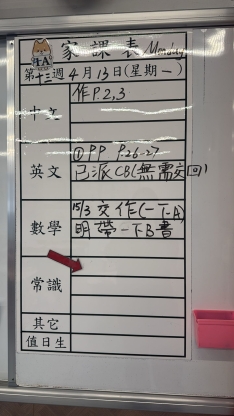 1A
家課表 Monday
第十三週 4月13日(星期一)
中文
作P.2,3
英文
①PP P.26-27
已派CB(無需交回)
數學
15/3 交作(一下A)
明帶一下B書
常識
其它
值日生